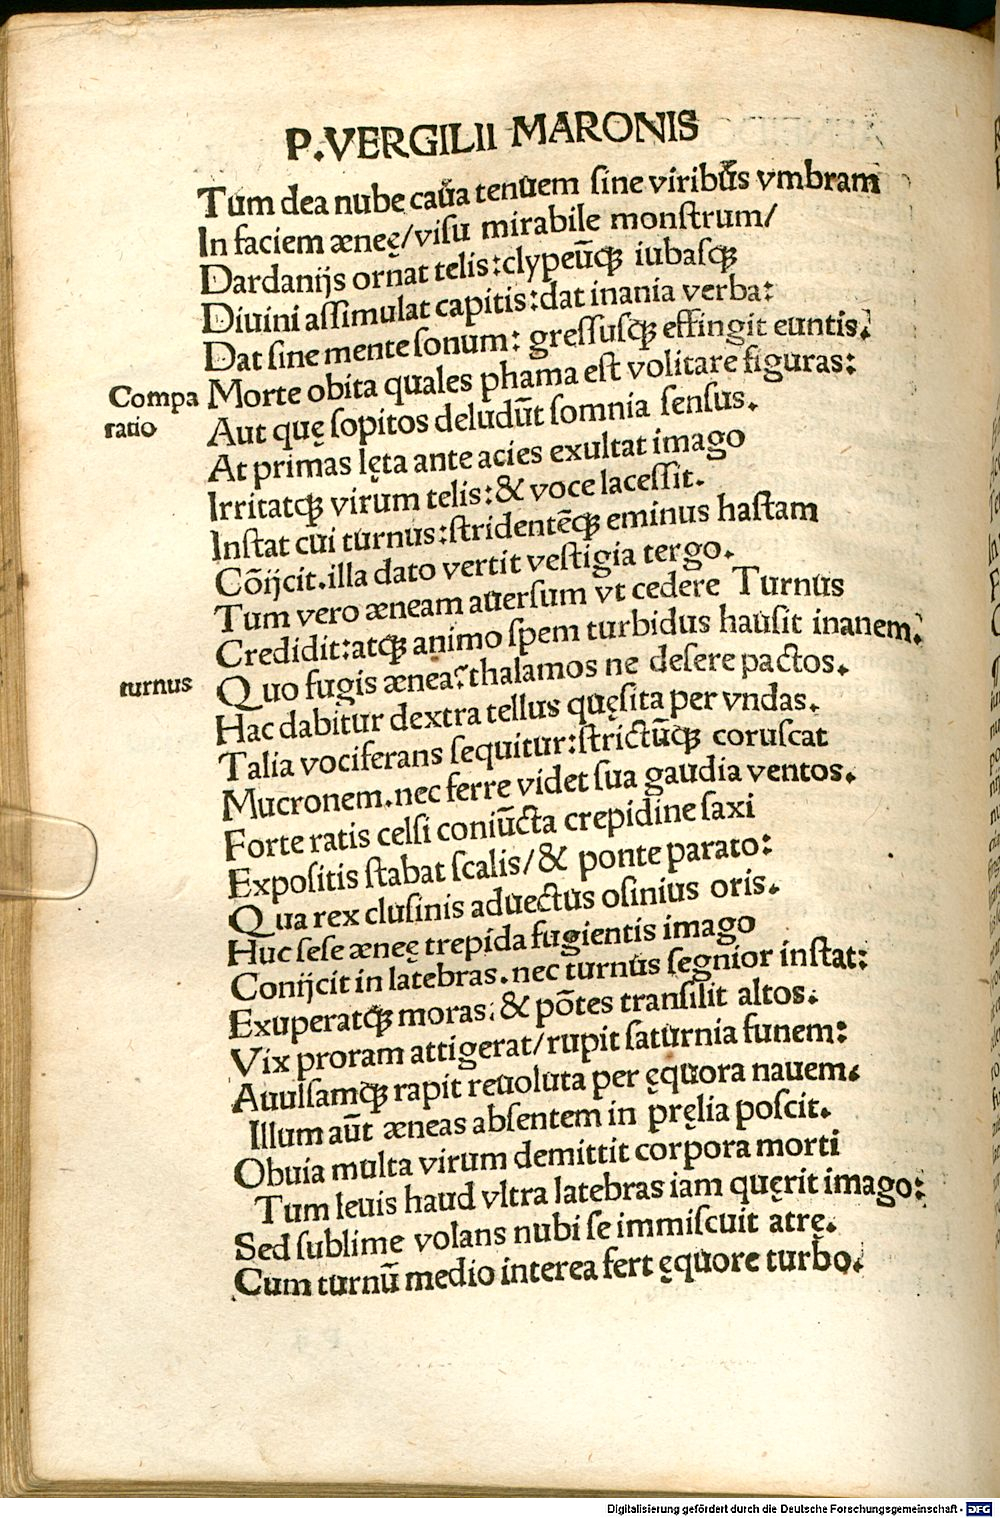 P.VERGILII MARONIS
Tum dea nube caua tenuem ſine viribus vmbram
In faciem æneę/viſu mirabile monſtrum/
Dardanijs ornat telis:clypeūqꝫ iubaſqꝫ
Diuini aſſimulat capitis:dat inania verba:
Dat ſine mente ſonum: greſſuſqꝫ effingit euntis.
Compa
ratio
Morte obita quales phama eſt volitare figuras:
Aut quę ſopitos deludūt ſomnia ſenſus.
At primas lęta ante acies exultat imago
Irritatqꝫ virum telis:& voce laceſſit.
Inſtat cui turnus:ſtridentēqꝫ eminus haſtam
Cōijcit.illa dato vertit veſtigia tergo.
Tum vero æneam auerſum vt cedere Turnus
Credidit:atqꝫ animo ſpem turbidus hauſit inanem.
turnus
Quo fugis ænea?thalamos ne deſere pactos.
Hac dabitur dextra tellus quęſita per vndas.
Talia vociferans ſequitur:ſtrictūqꝫ coruſcat
Mucronem.nec ferre videt ſua gaudia ventos.
Forte ratis celſi coniūcta crepidine ſaxi
Expoſitis ſtabat ſcalis/& ponte parato:
Qua rex cluſinis aduectus oſinius oris.
Huc ſeſe æneę trepida fugientis imago
Conijcit in latebras.nec turnus ſegnior inſtat:
Exuperatqꝫ moras:& pōtes tranſilit altos.
Vix proram attigerat/rupit ſaturnia funem:
Auulſamqꝫ rapit reuoluta per ęquora nauem.
Illum aūt æneas abſentem in pręlia poſcit.
Obuia multa virum demittit corpora morti
Tum leuis haud vltra latebras iam quęrit imago:
Sed ſublime volans nubi ſe immiſcuit atrę.
Cum turnū medio interea fert ęquore turbo.
Digitalisierung gefördert durch die Deutsche Forschungsgemeinschaft - DFG